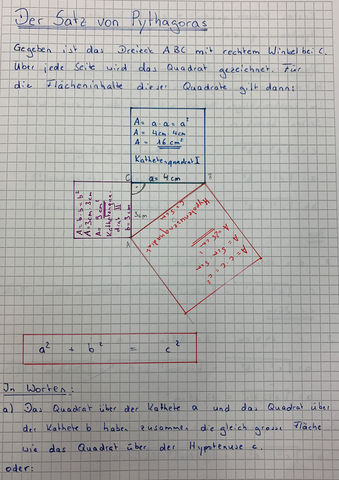 Der Satz von Pythagoras
Gegeben ist das Dreieck ABC mit rechtem Winkel bei C.
Über jede Seite wird das Quadrat gezeichnet. Für
die Flächeninhalte dieser Quadrate gilt dann:
A = a · a = a²
A = 4cm · 4cm
A = 16 cm²
Kathetenquadrat I
a = 4cm
C
B
A = b · b = b²
A = 3cm · 3cm
A = 9 cm²
Kathetenqua-
drat II
b = 3cm
3cm
A
c = 5cm
Hypotenusenquadrat
A = 25cm²
A = 5cm · 5cm
A = c · c = c²
a² + b² = c²
In Worten:
a) Das Quadrat über der Kathete a und das Quadrat über
der Kathete b haben zusammen die gleich grosse Fläche
wie das Quadrat über der Hypotenuse c.
oder: